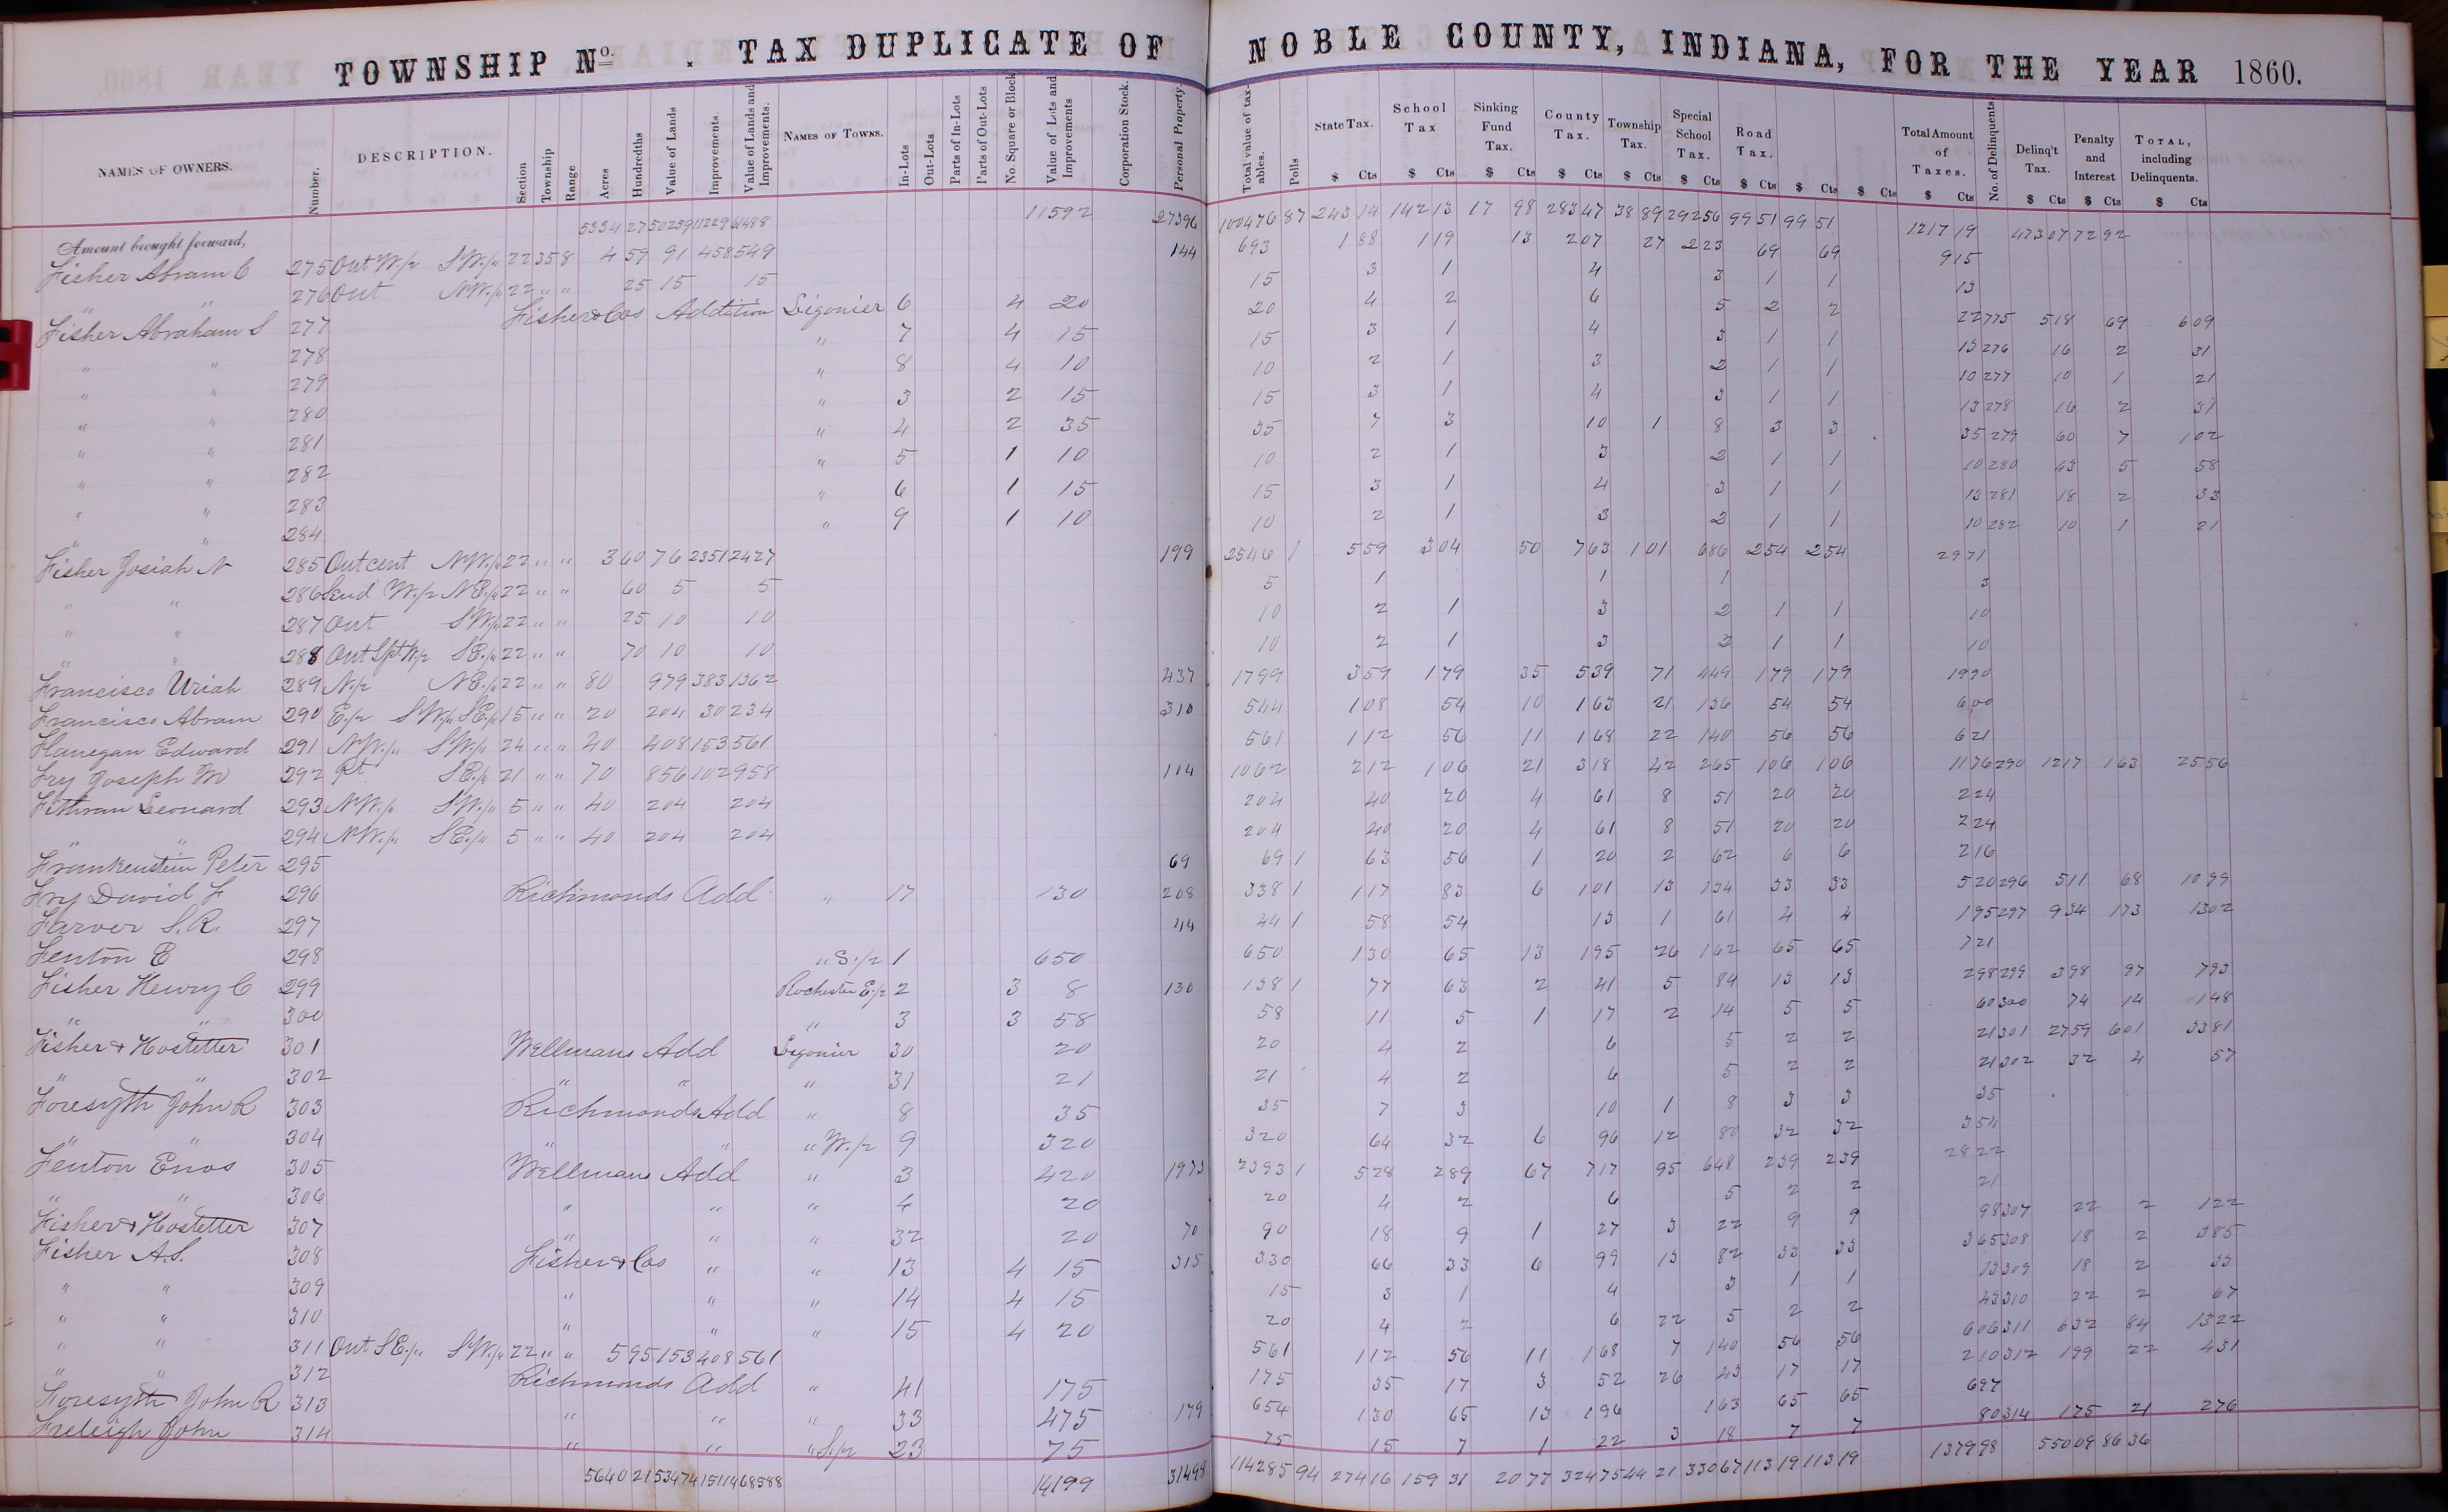 TOWNSHIP No. . TAX DUPLICATE OF NOBLE COUNTY, INDIANA, FOR THE YEAR 1860.
NAMES OF OWNERS. Number. DESCRIPTION. Section Township Range Acres Hundredths Value of Lands Improvements. Value of Lands and Improvements. NAMES OF TOWNS. In-Lots Out-Lots Parts of In-Lots Parts of Out-Lots No. Square or Block Value of Lots and Improvements Corporation Stock. Personal Property. Total value of taxables. Polls State Tax. School Tax Sinking Fund Tax. County Tax. Township Tax. Special School Tax. Road Tax. Total Amount of Taxes. No. of Delinquents. Delinq't Tax. Penalty and Interest TOTAL, including Delinquents.
$ Cts $ Cts $ Cts $ Cts $ Cts $ Cts $ Cts $ Cts $ Cts $ Cts $ Cts $ Cts $ Cts
Amount brought forward, 5334 27 50259 11229 61488 11592 27396 100476 87 243 14 142 13 17 98 283 47 38 89 292 56 99 51 99 51 1217 19 473 07 72 92
Fisher Abram C 275 Out W./2 SW./4 22 35 8 4 59 91 458 549 144 693 1 88 1 19 13 2 07 27 2 23 69 69 9 15
" " 276 Out NW./4 22 " " 25 15 15 15 3 1 4 3 1 1 13
Fisher Abraham S 277 Fisher & Cos Addition Ligonier 6 4 20 20 4 2 6 5 2 2 22 275 5 18 69 6 09
" " 278 " 7 4 15 15 3 1 4 3 1 1 13 276 16 2 31
" " 279 " 8 4 10 10 2 1 3 2 1 1 10 277 10 1 21
" " 280 " 3 2 15 15 3 1 4 3 1 1 13 278 16 2 31
" " 281 " 4 2 35 35 7 3 10 1 8 3 3 35 279 60 7 1 02
" " 282 " 5 1 10 10 2 1 3 2 1 1 10 280 43 5 58
" " 283 " 6 1 15 15 3 1 4 3 1 1 13 281 18 2 33
" " 284 " 9 1 10 10 2 1 3 2 1 1 10 282 10 1 21
Fisher Josiah N 285 Out cent NW./4 22 " " 3 60 76 2351 2427 199 2546 1 5 59 3 04 50 7 63 1 01 6 86 2 54 2 54 29 71
" " 286 Send W./2 NE./4 22 " " 60 5 5 5 1 1 1 3
" " 287 Out SW./4 22 " " 25 10 10 10 2 1 3 2 1 1 10
" " 288 Out Spt W/2 SE./4 22 " " 70 10 10 10 2 1 3 2 1 1 10
Francisco Uriah 289 N./2 NE./4 22 " " 80 979 383 1362 437 1799 3 59 1 79 35 5 39 71 4 49 1 79 1 79 19 90
Francisco Abram 290 E./2 SW./4 SE./4 15 " " 20 204 30 234 310 544 1 08 54 10 1 63 21 1 36 54 54 6 00
Flanegan Edward 291 NW./4 SW./4 24 " " 40 408 153 561 561 1 12 56 11 1 68 22 1 40 56 56 6 21
Fry Joseph M 292 Pt SE./4 21 " " 70 856 102 958 114 1062 2 12 1 06 21 3 18 42 2 65 1 06 1 06 11 76 290 12 17 1 63 25 56
Fithran Leonard 293 NW./4 SW./4 5 " " 40 204 204 204 40 20 4 61 8 51 20 20 2 24
" " 294 NW./4 SE./4 5 " " 40 204 204 204 40 20 4 61 8 51 20 20 2 24
Frankenstein Peter 295 69 69 1 63 56 1 20 2 62 6 6 2 16
Fry David F 296 Richmonds Add " 17 130 208 338 1 1 17 83 6 1 01 13 1 34 33 33 5 20 296 5 11 68 10 99
Farver S.R. 297 44 44 1 58 54 13 1 61 4 4 1 95 297 9 34 1 73 13 02
Fenton E 298 " S./2 1 650 650 1 30 65 13 1 95 26 1 62 65 65 7 21
Fisher Henry C 299 Rochester E./2 2 3 8 130 138 1 77 63 2 41 5 84 13 13 2 98 299 3 98 97 7 93
" " 300 " 3 3 58 58 11 5 1 17 2 14 5 5 60 300 74 14 1 48
Fisher & Hostetter 301 Wellmans Add Ligonier 30 20 20 4 2 6 5 2 2 21 301 27 59 6 01 33 81
" " 302 " " " 31 21 21 4 2 6 5 2 2 21 302 32 4 57
Foresyth John R 303 Richmonds Add " 8 35 35 7 3 10 1 8 3 3 35
" " 304 " " " W./2 9 320 320 64 32 6 96 12 80 32 32 3 54
Fenton Enos 305 Wellmans Add " 3 420 1973 2393 1 5 28 2 89 67 7 17 95 6 48 2 39 2 39 28 22
" " 306 " " " 4 20 20 4 2 6 5 2 2 21
Fisher & Hostetter 307 " " " 32 20 70 90 18 9 1 27 3 22 9 9 98 307 22 2 1 22
Fisher A.S. 308 Fisher & Cos " " 13 4 15 315 330 66 33 6 99 13 82 33 33 3 65 308 18 2 3 85
" " 309 " " " 14 4 15 15 3 1 4 3 1 1 13 309 18 2 33
" " 310 " " " 15 4 20 20 4 2 6 22 5 2 2 43 310 22 2 67
" " 311 Out SE./4 SW./4 22 " " 5 95 153 408 561 561 1 12 56 11 1 68 7 1 40 56 56 6 06 311 6 32 84 13 22
" " 312 Richmonds Add " 41 175 175 35 17 3 52 26 43 17 17 2 10 312 1 99 22 4 31
Foresyth John R 313 " " " 33 475 179 654 1 30 65 13 1 96 1 63 65 65 6 97
Freleigh John 314 " " " S./2 23 75 75 15 7 1 22 3 18 7 7 80 314 1 75 21 2 76
5640 21 53474 15114 68588 14199 31498 114285 94 274 16 159 31 20 77 324 75 44 21 330 67 113 19 113 19 1379 98 550 09 86 36